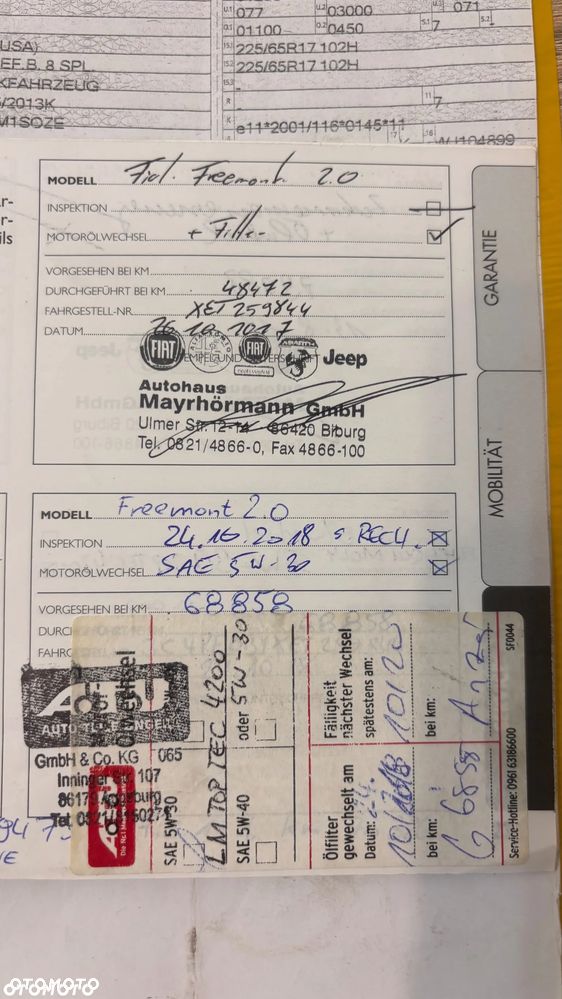 U.1 077 U.2 03000 V.7 071
O.1 01100 O.2 0450 S.1 7 S.2 -
USA) 15.1 225/65R17 102H
EF.B. 8 SPL 15.2 225/65R17 102H
KFAHRZEUG 15.3 -
/2013K R - 11 7
M1SOZE K e11*2001/116*0145*11
17 K 16 WJ104899
MODELL Fiat Freemont 2.0
INSPEKTION
MOTORÖLWECHSEL + Filter
VORGESEHEN BEI KM
DURCHGEFÜHRT BEI KM 48472
FAHRGESTELL-NR. XET259844
DATUM 26.10.2017
FIAT FIAT ABARTH Jeep
STEMPEL UND UNTERSCHRIFT
Autohaus
Mayrhörmann GmbH
Ulmer Str. 12-14 86420 Biburg
Tel. 0821/4866-0, Fax 4866-100
GARANTIE
MOBILITÄT
MODELL Freemont 2.0
INSPEKTION 24.10.2018
MOTORÖLWECHSEL SAE 5W-30
VORGESEHEN BEI KM 68858
DURC
FAHRG
A.T.U
AUTO
GmbH & Co. KG 065
Inninger Str. 107
86179 Augsburg
Tel. 0821/
Ölwechsel
SAE 5W-30
LM TOP TEC 4200
SAE 5W-40
oder 5W-30
Ölfilter
gewechselt am
Datum:
bei km:
Fälligkeit
nächster Wechsel
spätestens am:
10/20
bei km:
Service-Hotline: 0961 63186600
SF0044
OTOMOTO
OTOMOTO